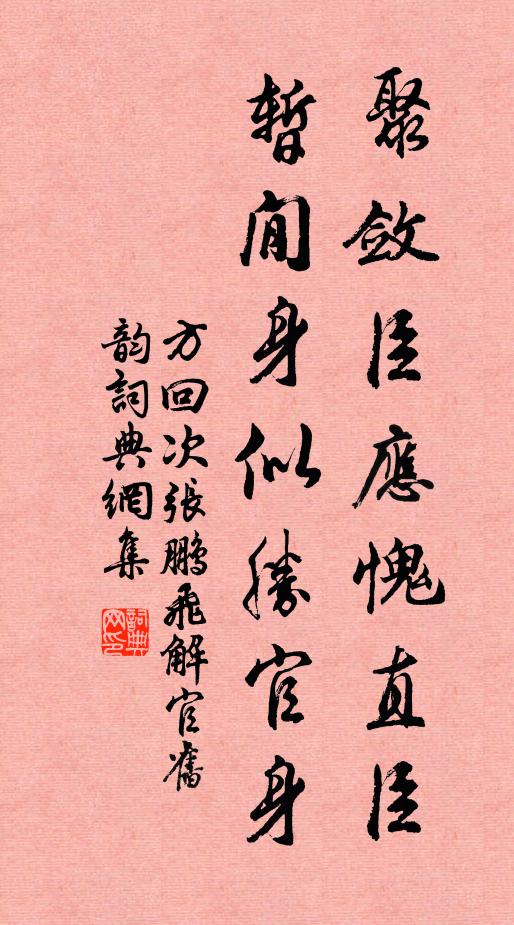 聚斂臣應愧直臣
暫閒身似勝官身
方回次張鵬飛解官舊
韵詞典網集
詞典網印